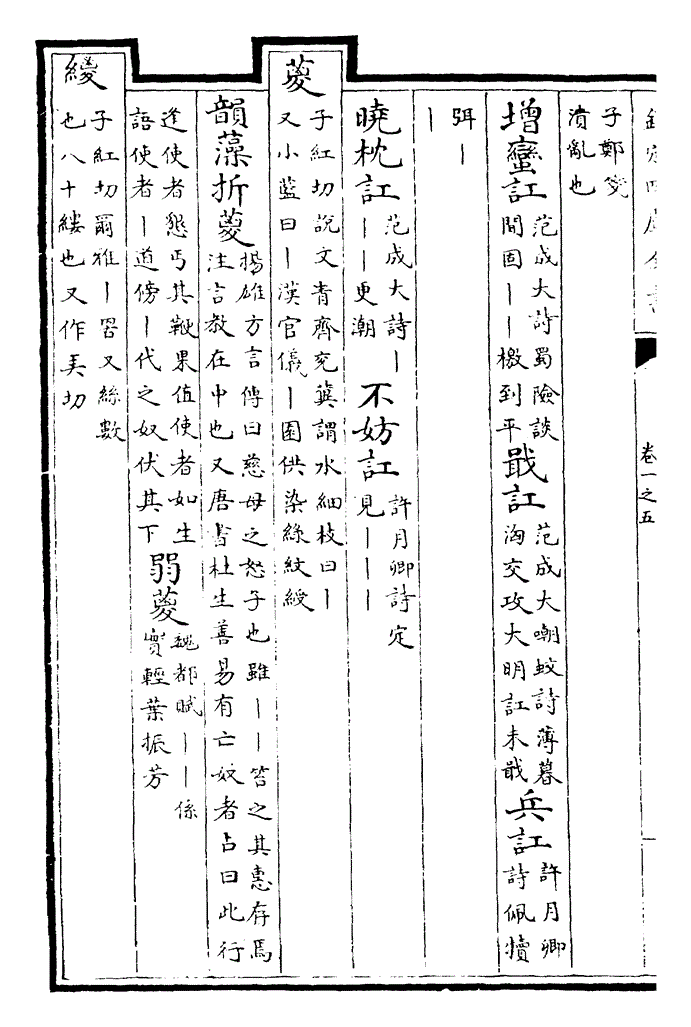 欽定四庫全書
卷一之五
子鄭箋
潰亂也
增蠻訌
范成大詩蜀險談
間固丨丨檄到平
戢訌
范成大嘲蚊詩薄暮
洶交攻大明訌未戢
兵訌
許月卿
詩佩犢
弭丨
丨
曉枕訌
范成大詩丨
丨丨更潮
不妨訌
許月卿詩定
見丨丨丨
葼
子紅切說文青齊兖冀謂水細枝曰丨
又小藍曰丨漢官儀丨園供染綠紋綬
韻藻折葼
揚雄方言傳曰慈母之怒子也雖丨丨笞之其惠存焉
注言教在中也又唐書杜生善易有亡奴者占曰此行
逢使者懇丐其鞭果值使者如生
語使者丨道傍丨代之奴伏其下
弱葼
魏都賦丨丨係
實輕葉振芳
緵
子紅切爾雅丨罟又絲數
也八十縷也又作弄切